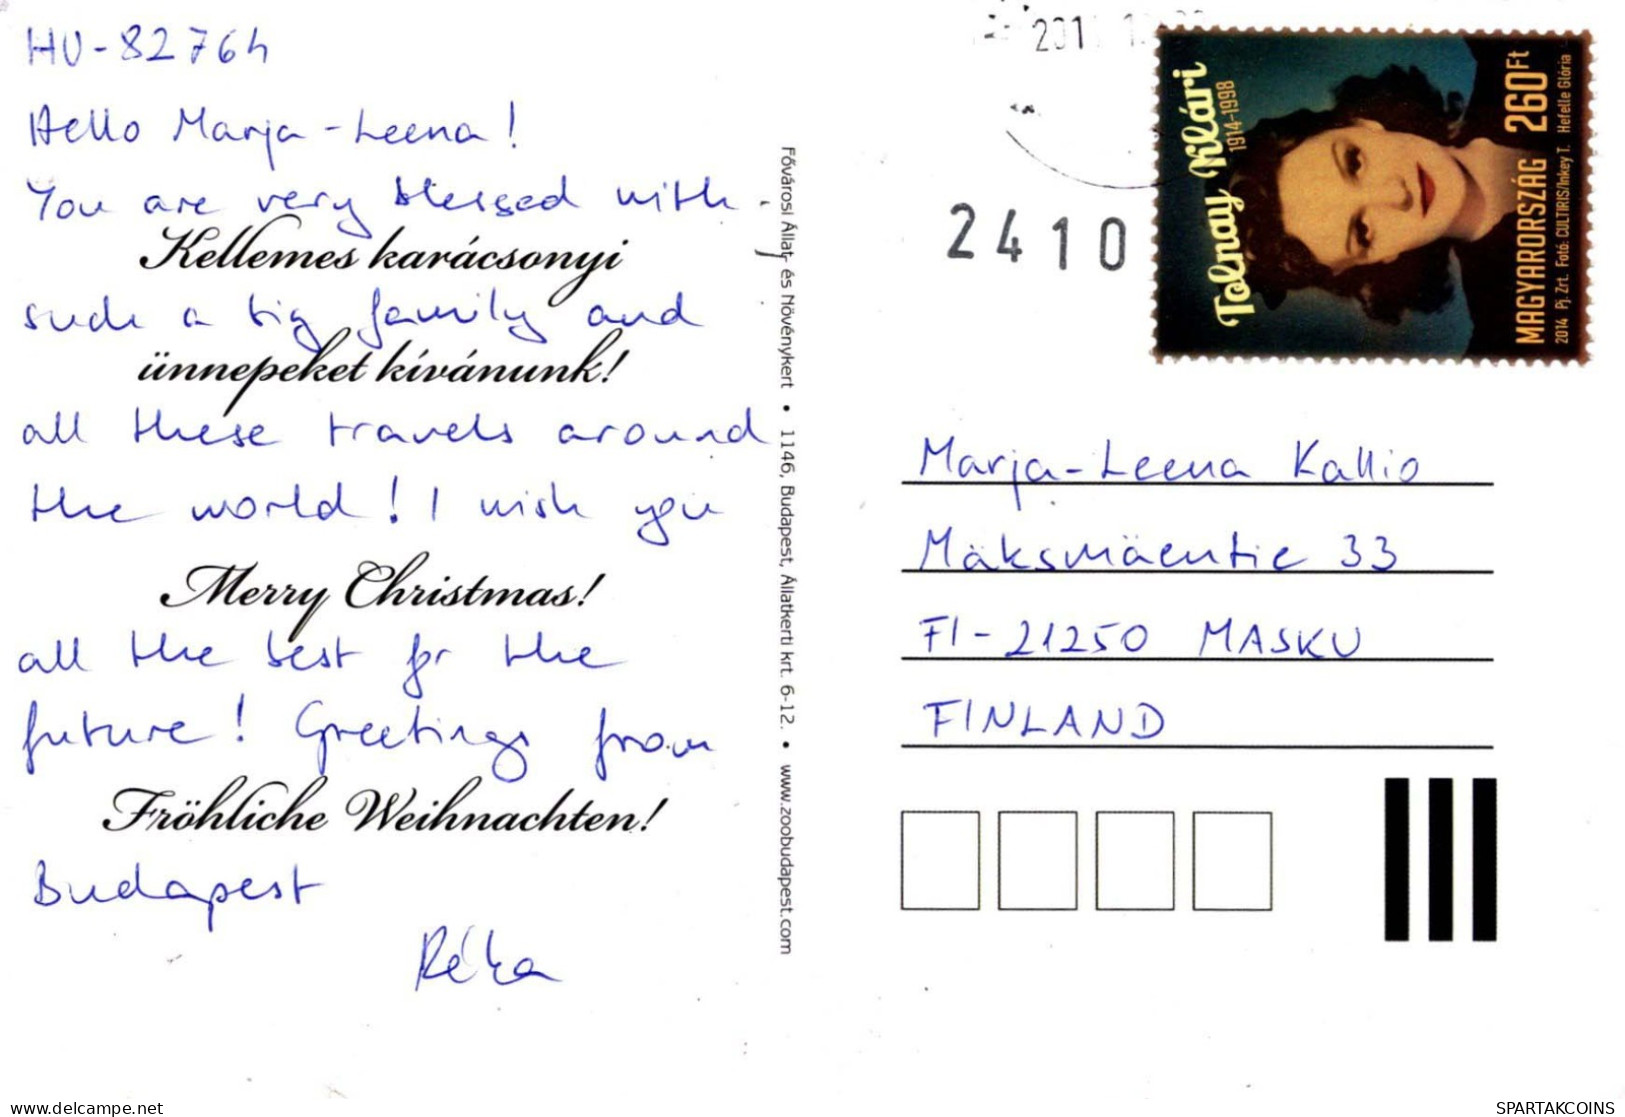 HU-82764
Hello Marja-Leena!
You are very blessed with
Kellemes karácsonyi
such a big family and
ünnepeket kívánunk!
all these travels around
the world! I wish you
Merry Christmas!
all the best for the
future! Greetings from
Fröhliche Weihnachten!
Budapest
Réka
Fővárosi Állat- és Növénykert • 1146, Budapest, Állatkerti krt. 6-12. • www.zoobudapest.com
201
2410
Tolnay Klári
1914-1998
MAGYARORSZÁG 260Ft
2014 Pj. Zrt. Fotó: CULTIRIS/Inkey T. Hefelle Glória
Marja-Leena Kallio
Mäksmäentie 33
FI-21250 MASKU
FINLAND
www.delcampe.net
SPARTAKCOINS